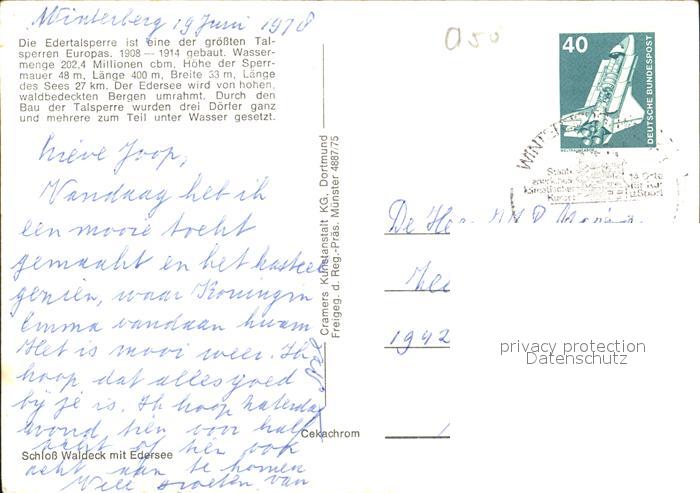 Winterberg 19 Juni 1978
Die Edertalsperre ist eine der größten Tal-
sperren Europas. 1908 — 1914 gebaut. Wasser-
menge 202,4 Millionen cbm, Höhe der Sperr-
mauer 48 m, Länge 400 m, Breite 33 m, Länge
des Sees 27 km. Der Edersee wird von hohen,
waldbedeckten Bergen umrahmt. Durch den
Bau der Talsperre wurden drei Dörfer ganz
und mehrere zum Teil unter Wasser gesetzt.
Lieve Joop,
Vandaag heb ik
een mooie tocht
gemaakt en het kasteel
gezien, waar Koningin
Emma vandaan kwam
Het is mooi weer. Ik
hoop dat alles goed
bij je is. Ik hoop zaterdag
avond tien voor half
acht of tien over
acht aan te komen
Vele groeten van
Schloß Waldeck mit Edersee
Cekachrom
Cramers Kunstanstalt KG, Dortmund
Freigeg. d. Reg.-Präs. Münster 4887/75
050
40
DEUTSCHE BUNDESPOST
WINTE
De
1942
privacy protection
Datenschutz